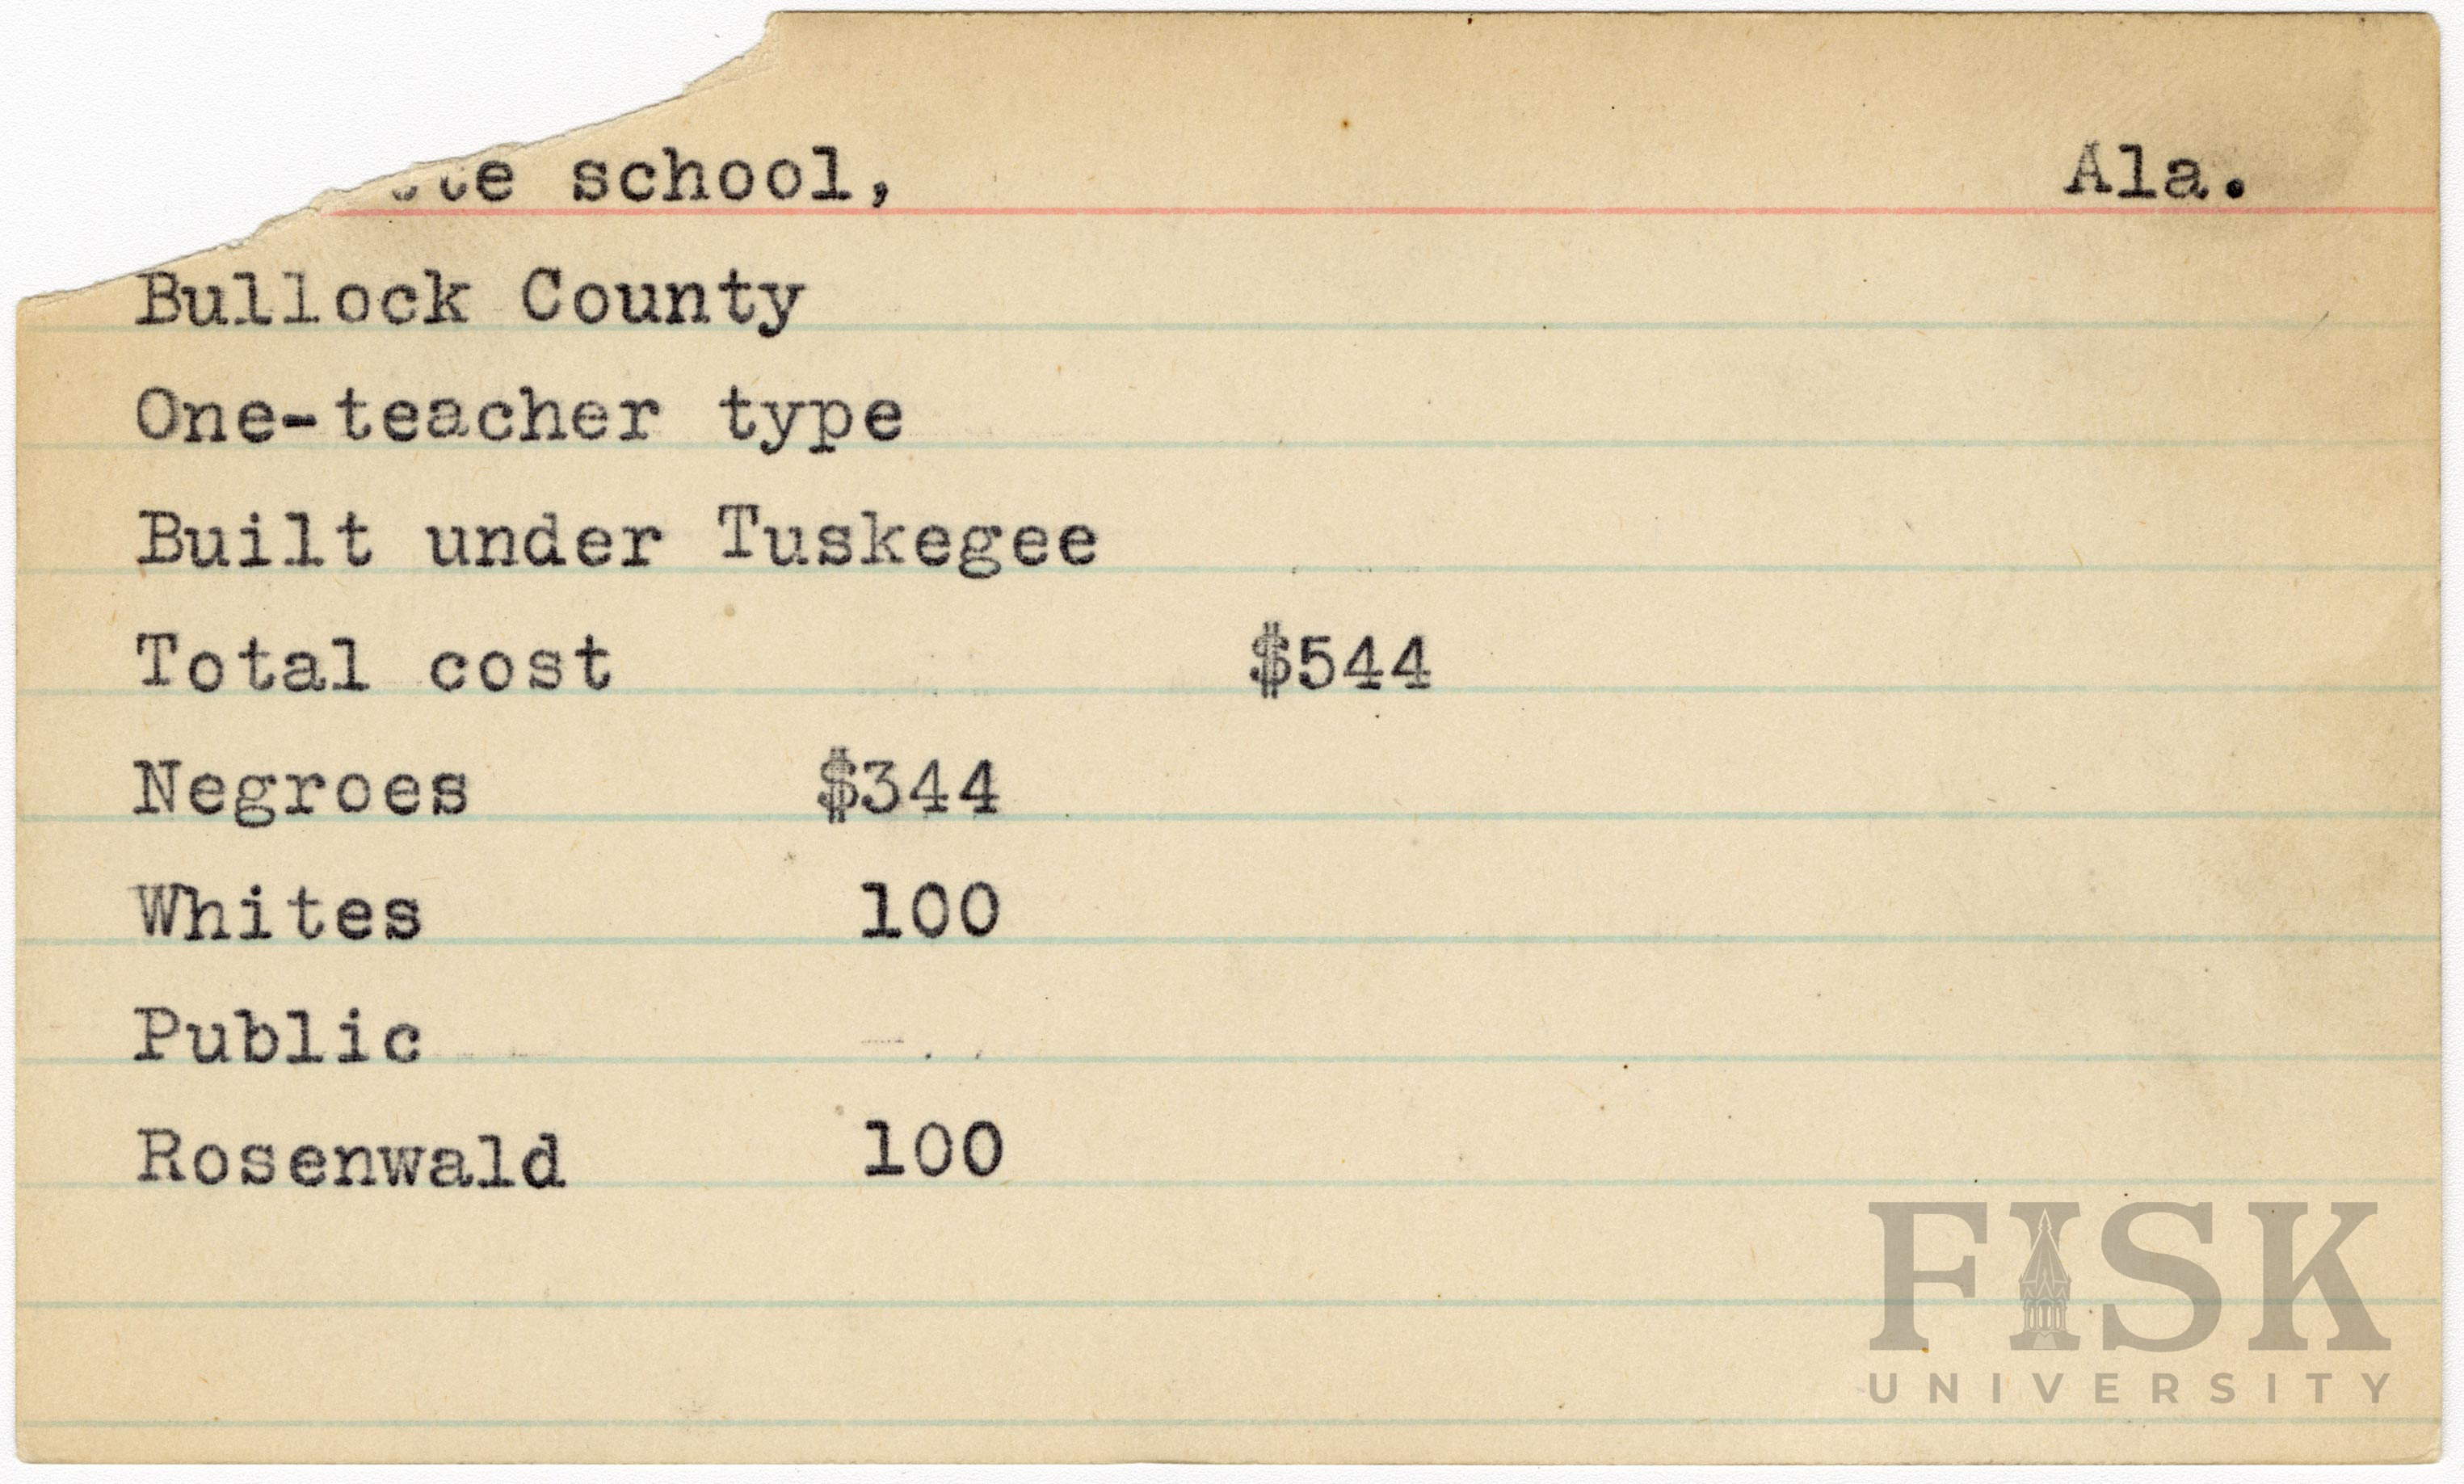 school, Ala.
Bullock County
One-teacher type
Built under Tuskegee
Total cost $544
Negroes $344
Whites 100
Public
Rosenwald 100
FISK
UNIVERSITY